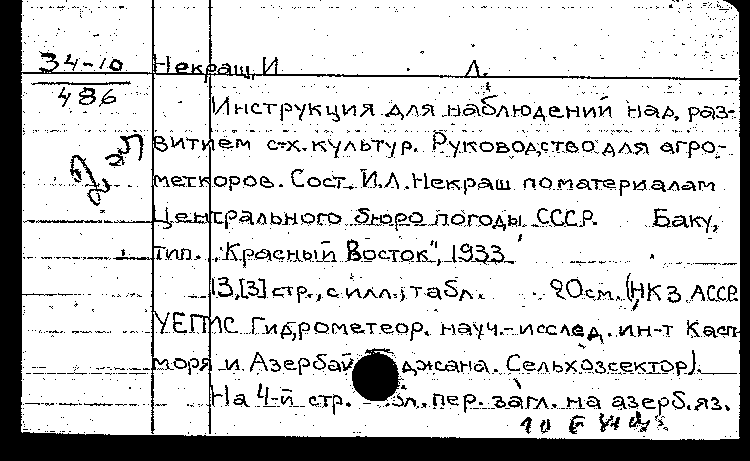 34-10 Некраш, И Л.
486
Инструкция для наблюдений над раз-
витием с-х. культур. Руководство для агро-
меткоров. Сост. И.Л. Некраш по материалам
Центрального бюро погоды СССР. Баку,
тип. "Красный Восток", 1933
13,[3] стр., с илл.; табл. 20 см. (НКЗ АССР.
УЕГМС Гидрометеор. науч.-исслед. ин-т Касп
моря и Азербайджана. Сельхозсектор).
На 4-й стр. пер. загл. на азерб. яз.